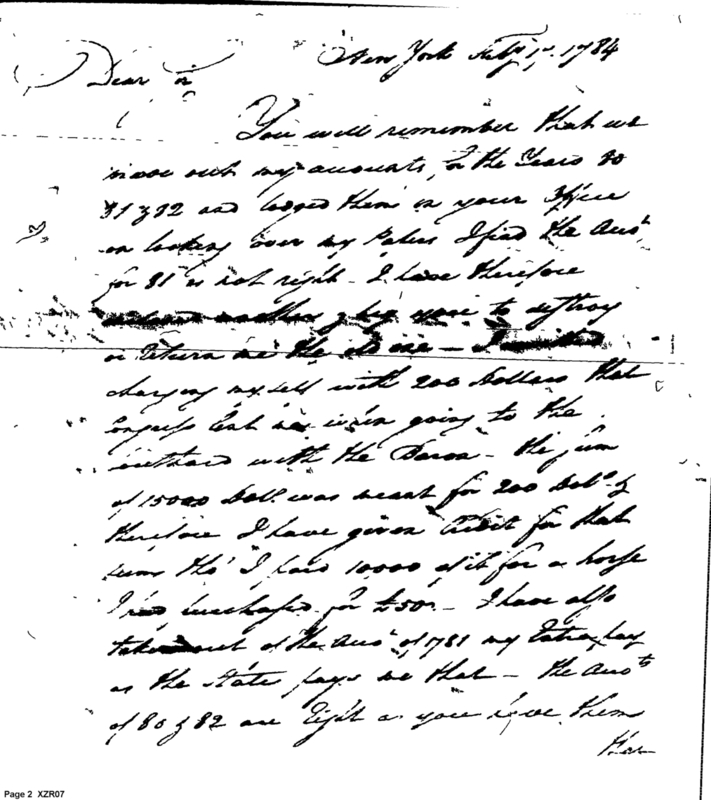 New York Feby 1st. 1784
Dear Sir
You will remember that we
made out my accounts, for the Years 80
81 & 82 and lodged them in your Office
on looking over my Papers I find the Aust.
for 81 is not right - I have therefore
another & beg you to destroy
or return me the old one - I
charging myself with 200 Dollars that
Congress lent me when going to the
southard with the Baron - the sum
of 15000 Doll. was meant for 200 Dols. &
therefore I have given Credit for that
sum tho' I paid 10,000 of it for a horse
I had purchased for £50. - I have also
taken out of the Aust. of 1781 my Extra pay
as the State pays me that - the Austs
of 80 & 82 are right as you have them